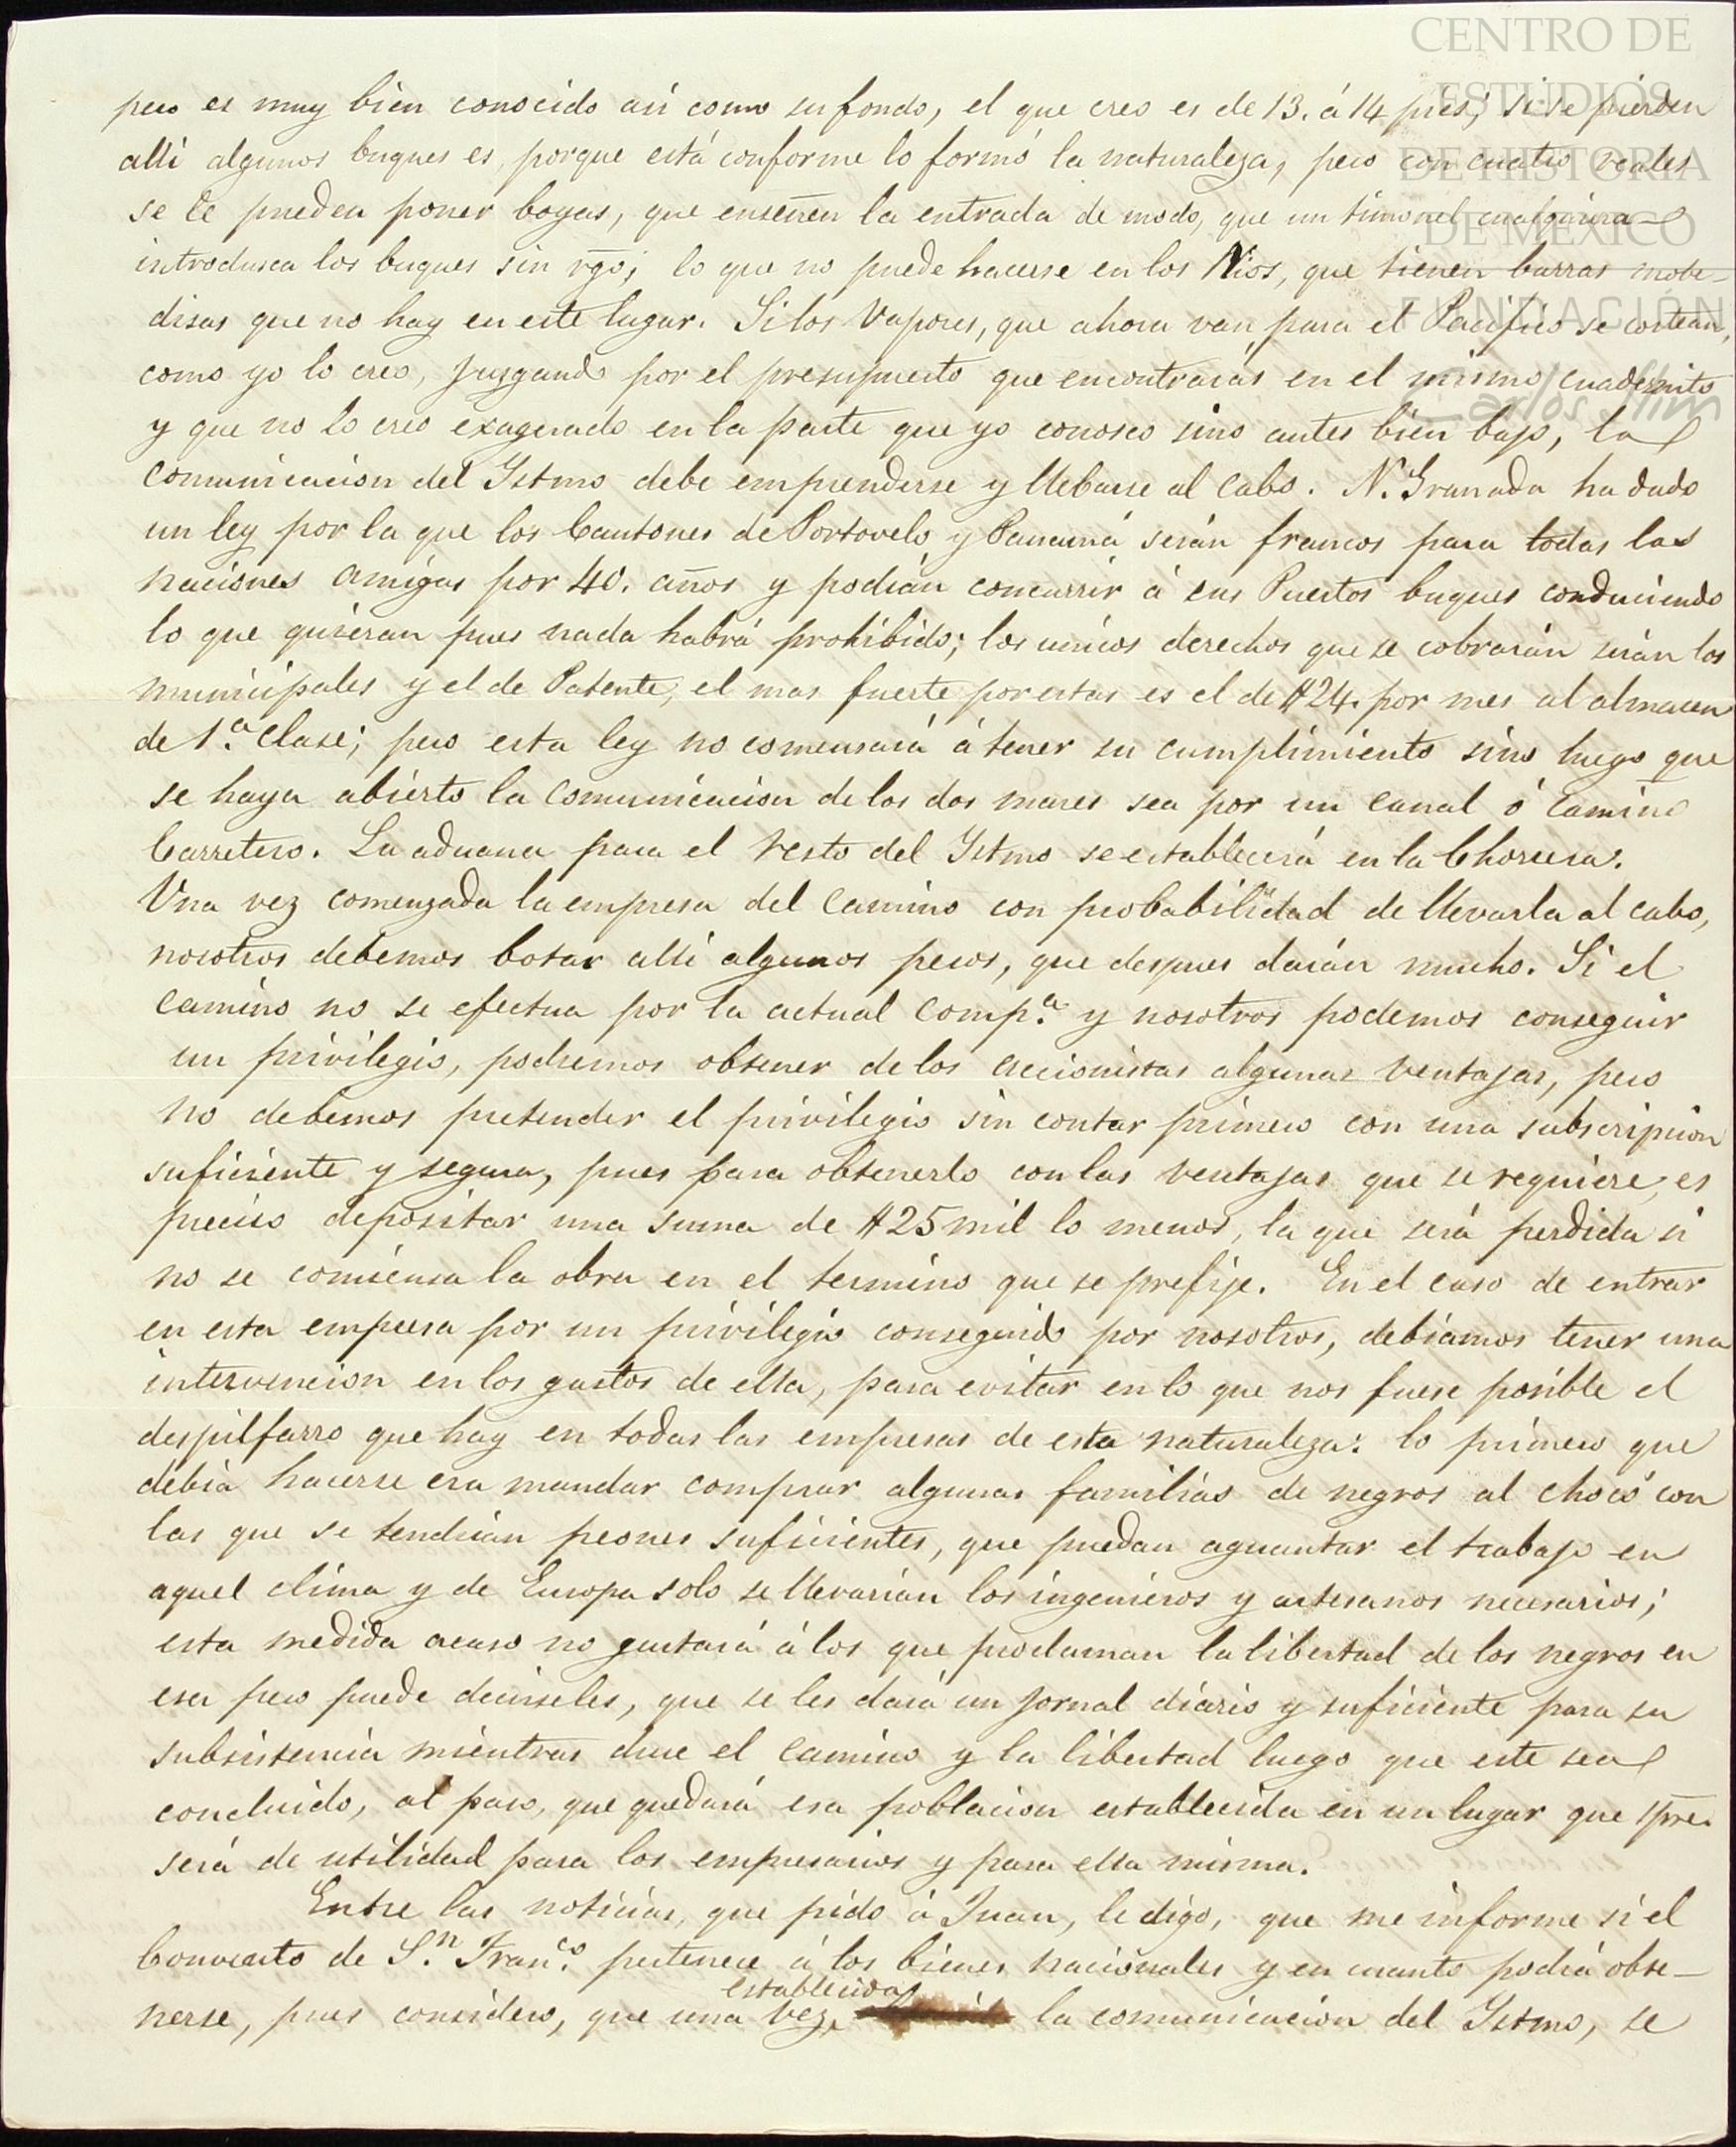 CENTRO DE
ESTUDIOS
DE HISTORIA
DE MÉXICO
FUNDACIÓN
Carlos Slim
pero es muy bien conocido asi como su fondo, el que creo es de 13. á 14 pies; si se pierden
alli algunos buques es, porque está conforme lo formó la naturaleza, pero con cuatro reales
se le pueden poner boyas, que enseñen la entrada de modo, que un timonel cualquiera
introdusca los buques sin rgo; lo que no puede hacerse en los Rios, que tienen barras move-
disas que no hay en este lugar. Si los Vapores, que ahora van para el Pacifico se costean,
como yo lo creo, juzgando por el presupuesto que encontrarás en el mismo cuadernito
y que no lo creo exagerado en la parte que yo conosco sino antes bien bajo, la
comunicacion del Ystmo debe emprenderse y llebarse al cabo. N. Granada ha dado
un ley por la que los Cantones de Portovelo y Panamá serán francos para todas las
naciones amigas por 40. años y podrán concurrir á sus Puertos buques conduciendo
lo que quieran pues nada habrá prohibido; los unicos derechos que se cobrarán serán los
municipales y el de Patente, el mas fuerte por estas es el de $24. por mes al almacen
de 1.ª Clase; pero esta ley no comensará á tener su cumplimiento sino luego que
se haya abierto la comunicacion de los dos mares sea por un canal ó Camino
Carretero. La aduana para el resto del Ystmo se establecerá en la Chorrera.
Una vez comenzada la empresa del Camino con probabilidad de llevarla al cabo,
nosotros debemos botar alli algunos pesos, que despues darán mucho. Si el
camino no se efectua por la actual Comp.ª y nosotros podemos conseguir
un privilegio, podremos obtener de los accionistas algunas ventajas, pero
no debemos pretender el privilegio sin contar primero con una subscripcion
suficiente y segura, pues para obtenerlo con las ventajas que se requiere, es
preciso depositar una suma de $25 mil lo menos, la que será perdida si
no se comiensa la obra en el termino que se prefije. En el caso de entrar
en esta empresa por un privilegio conseguido por nosotros, debiamos tener una
intervencion en los gastos de ella, para evitar en lo que nos fuese posible el
despilfarro que hay en todas las empresas de esta naturaleza: lo primero que
debia hacerse era mandar comprar algunas familias de negros al chocó con
las que se tendrian peones suficientes, que puedan aguantar el trabajo en
aquel clima y de Europa solo se llevarian los ingenieros y artesanos necesarios;
esta medida acaso no gustará á los que proclaman la libertad de los negros en
esa pero puede decirseles, que se les dará un jornal diario y suficiente para su
subsistencia mientras dure el camino y la libertad luego que este sea
concluido, al paso, que quedará esa poblacion establecida en un lugar que spre.
será de utilidad para los empresarios y para ella misma.
Entre las noticias, que pido á Juan, le digo, que me informe si el
Convento de S.n Fran.co pertenece á los bienes nacionales y en cuanto podrá obte-
nerse, pues considero, que una vez establecida la comunicacion del Ystmo, se